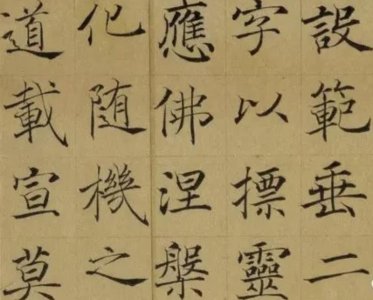 設範垂二
字以摽靈
應佛涅槃
化随機之
道載宣莫